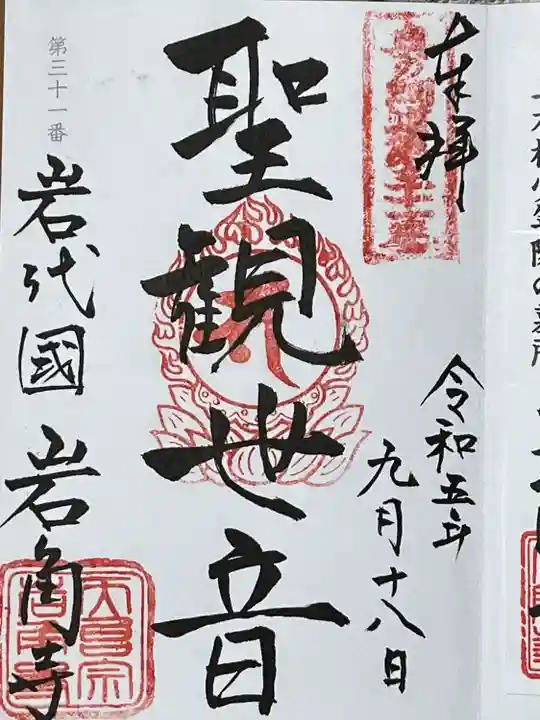 奉拝
令和五年
九月十八日
聖観世音
第三十一番
岩代國 岩角寺
天台宗